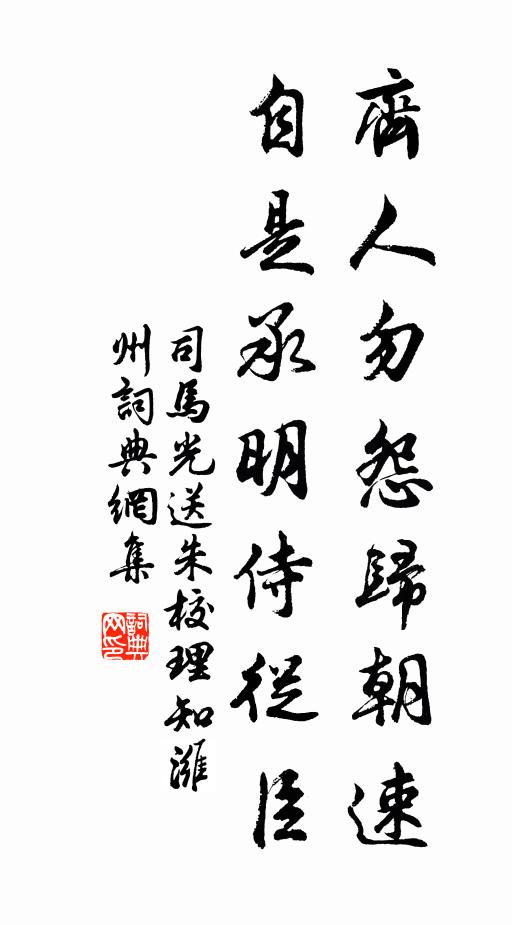 齊人勿怨歸朝速
自是承明侍從臣
司馬光送朱校理知濰
州詞典網集
詞典網印